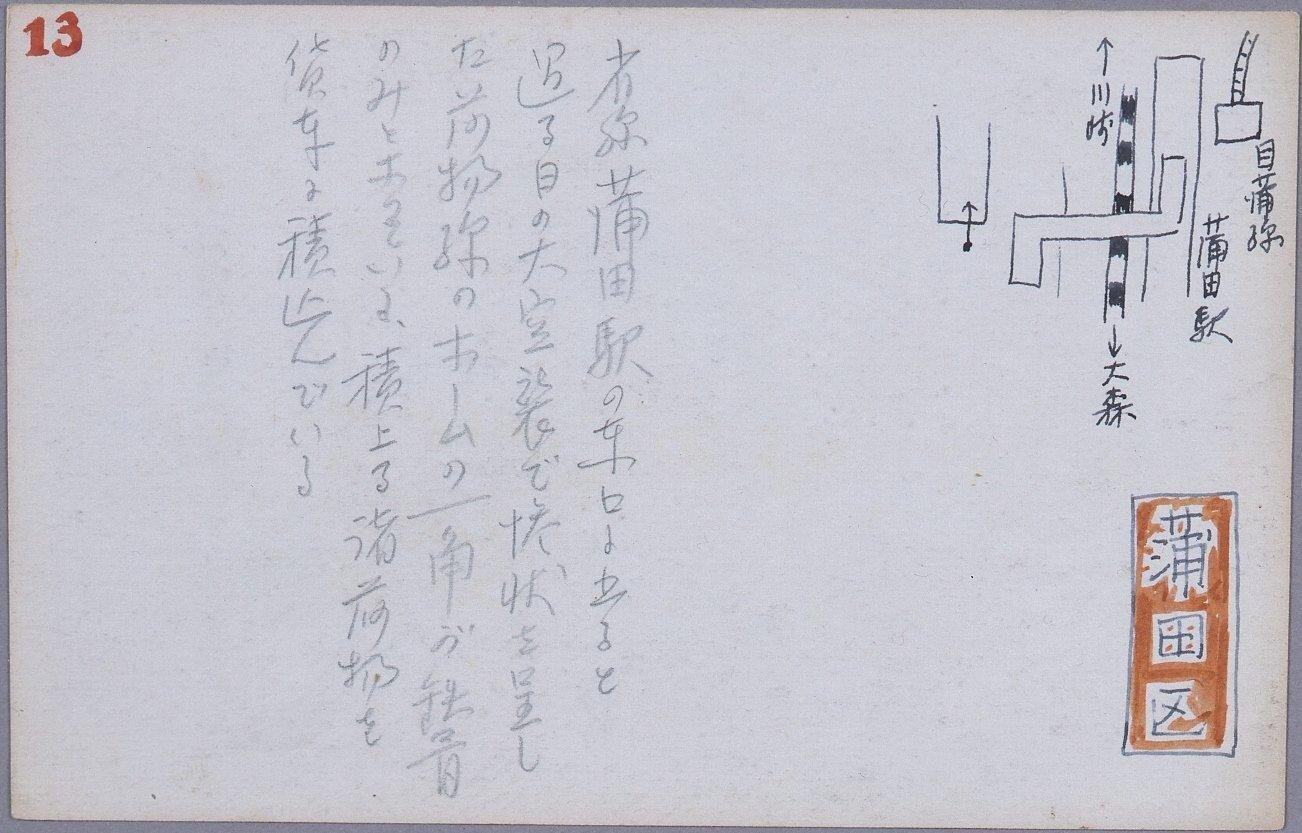 13
↑川崎
目蒲線
蒲田駅
↓大森
蒲田区
省線蒲田駅の東口に出ると
過る日の大空襲で惨状を呈し
た荷物線のホームの一角が鉄骨
のみと木そいる、積上る諸荷物を
貨車に積込んでいる